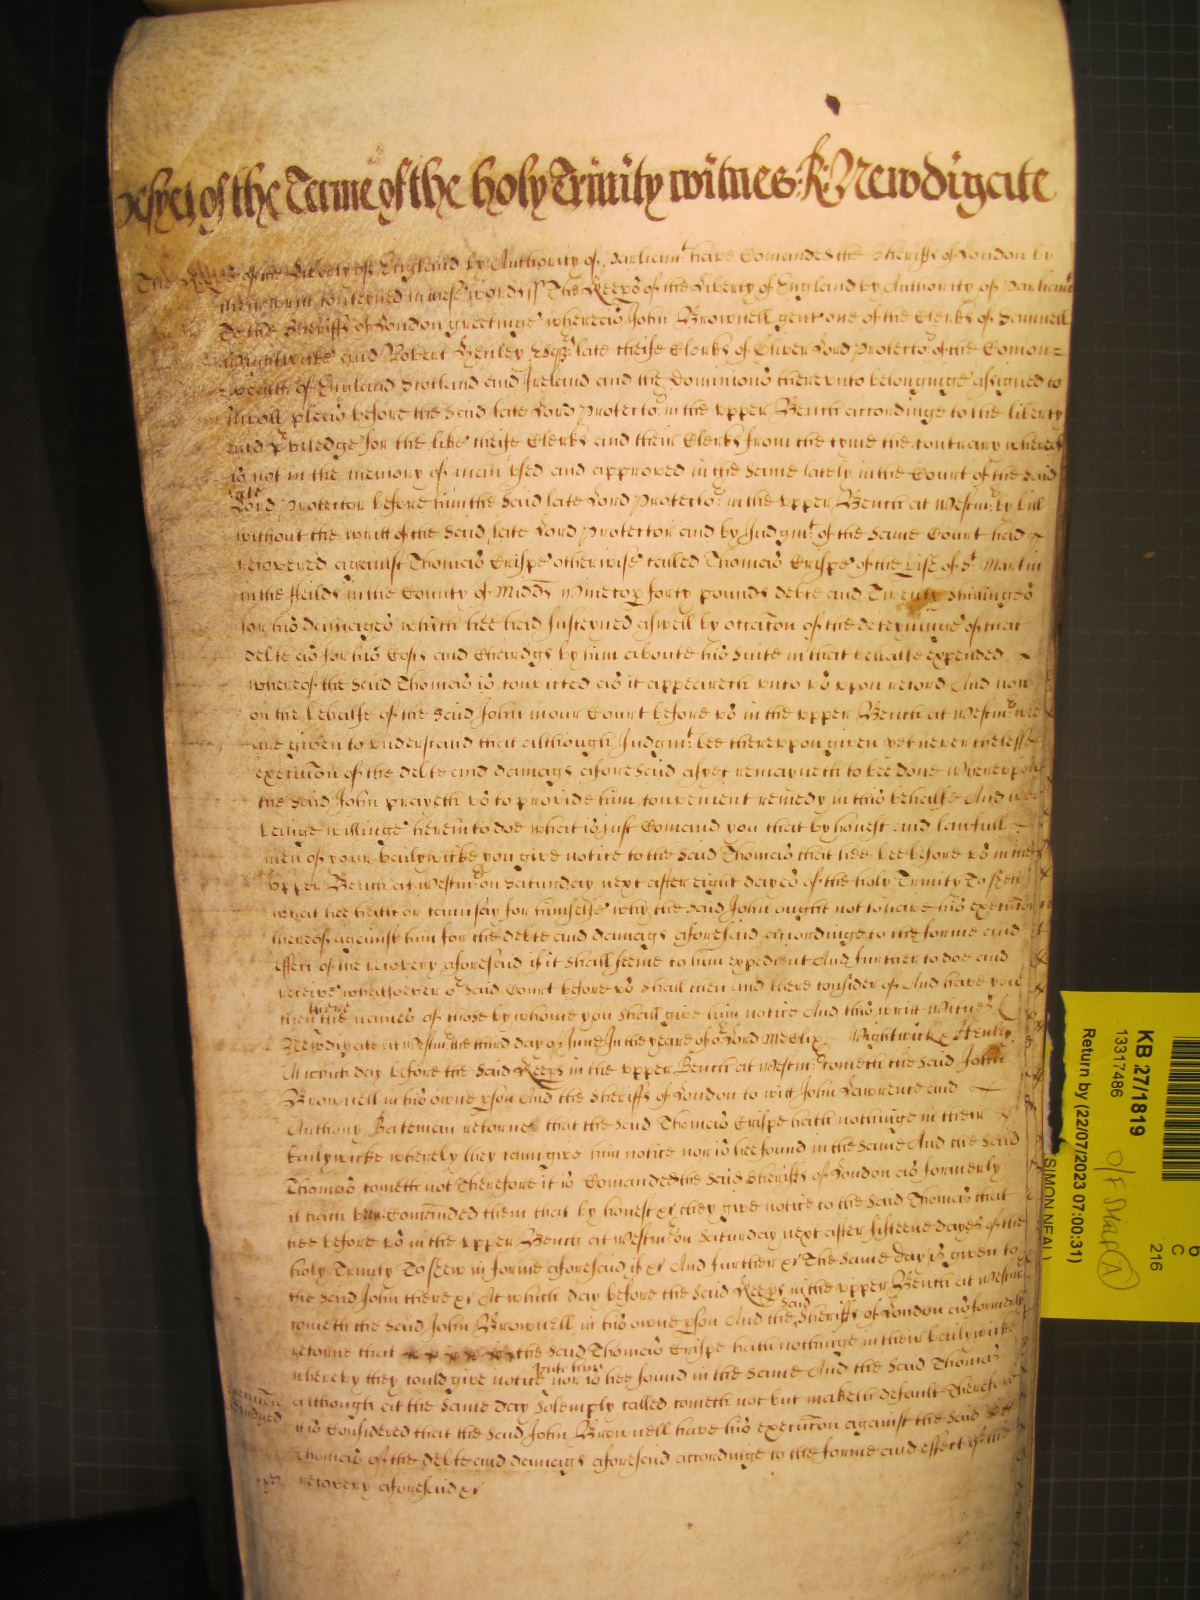 As yet of the Terme of the holy Trinity witnes: R: Newdigate
The Keeps of the Liberty of England by Authority of Parliamt have Comanded the Sheriffs of London by
their writt conteyned in these words ss The Keeps of the Liberty of England by Authority of Parliamt
To the Sheriffs of London greetinge whereas John Brownell gent one of the Clerks of Samuell
Wightwicke and Robert Henley Esqs late cheife Clerks of Oliver Lord Protector of the Comon=
wealth of England Scotland and Ireland and the Dominions thereunto belonginge assigned to
inroll pleas before the said late Lord Protector in the upper Bench accordinge to the liberty
and pviledge for the like cheife Clerks and their Clerks from the tyme the contrary whereof
is not in the memory of man used and approved in the same lately in the Court of the said
late
Lord Protector before him the said late Lord Protector in the upper Bench at Westmr by bill
without the writt of the said late Lord Protector and by Judgmt of the same Court had
recovered against Thomas Crispe otherwise called Thomas Crispe of the pish of St Martin
in the ffeilds in the County of Midds forty pounds debte and Twenty shillinges
for his damages which hee had susteyned aswell by occacon of the deteyninge of that
debte as for his Costs and Chardgs by him aboute his suite in that behalfe expended
whereof the said Thomas is convicted as it appeareth unto us upon record And now
on the behalfe of the said John in our Court before us in the upper Bench at Westmr wee
are given to understand that although Judgmt bee thereupon given yet neverthelesse
execucon of the debte and damags aforesaid as yet remayneth to bee done Whereupon
the said John prayeth us to provide him convenient remedy in this behalfe And wee
beinge willinge herein to doe what is just Comand you that by honest and lawfull
men of your bailywicke you give notice to the said Thomas that hee bee before us in the
upper Bench at Westmr on Saturday next after eight dayes of the holy Trinity To shew
what hee hath or can say for himselfe why the said John ought not to have his execucon
thereof against him for the debte and damags aforesaid accordinge to the forme and
effect of the recovery aforesaid if it shall seeme to him expedient And further to doe and
receive whatsoever or said Court before us shall then and there consider of And have you
there
then the names of those by whome you shall give him notice And this writt Witnes R
Newdigate at Westmr the third day of June In the yeare of or Lord MDClix Wightwick & Henley
At which day before the said Keeps in the upper Bench at Westmr cometh the said John
Brownell in his owne pson And the Sheriffs of London to witt John Lawrence and
Anthony Bateman retorne that the said Thomas Crispe hath nothinge in their
bailywicke whereby they cann give him notice nor is hee found in the same And the said
Thomas cometh not Therefore it is Comanded the said Sheriffs of London as formerly
it hath ben Comanded them that by honest &c they give notice to the said Thomas that
hee bee before us in the upper Bench at Westmr on Saturday next after fifteene dayes of the
holy Trinity To shew in forme aforesaid if &c And further &c The same day is given to
the said John there &c At which day before the said Keeps in the upper Bench at Westmr
said
cometh the said John Brownell in his owne pson And the Sheriffs of London as formerly
retorne that the said Thomas Crispe hath nothinge in their bailywicke
unto him
whereby they could give notice nor is hee found in the same And the said Thomas
although at the same day solemply called cometh not but maketh default Therefore
it is Considered that the said John Brownell have his execucon against the said
Thomas of the debte and damags aforesaid accordinge to the forme and effect of the
recovery aforesaid &c
KB 27/1819
13317486
Return by (22/07/2023 07:00:31)
SIMON NEAL
C
216